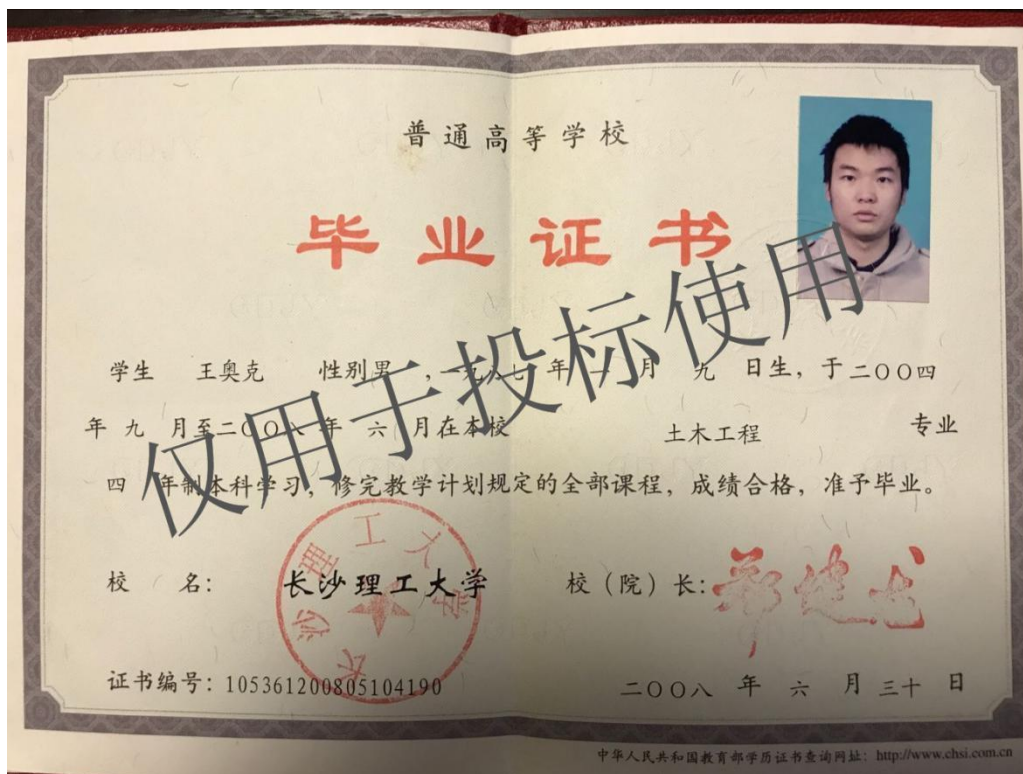 普通高等学校
毕业证书
学生 王奥克 性别男，一九八七年二月九日生，于二〇〇四
年九月至二〇〇八年六月在本校 土木工程 专业
四年制本科学习，修完教学计划规定的全部课程，成绩合格，准予毕业。
校 名：长沙理工大学 校（院）长：郑健龙
长沙理工大学
证书编号：105361200805104190 二〇〇八年六月三十日
中华人民共和国教育部学历证书查询网址：http://www.chsi.com.cn
仅用于投标使用